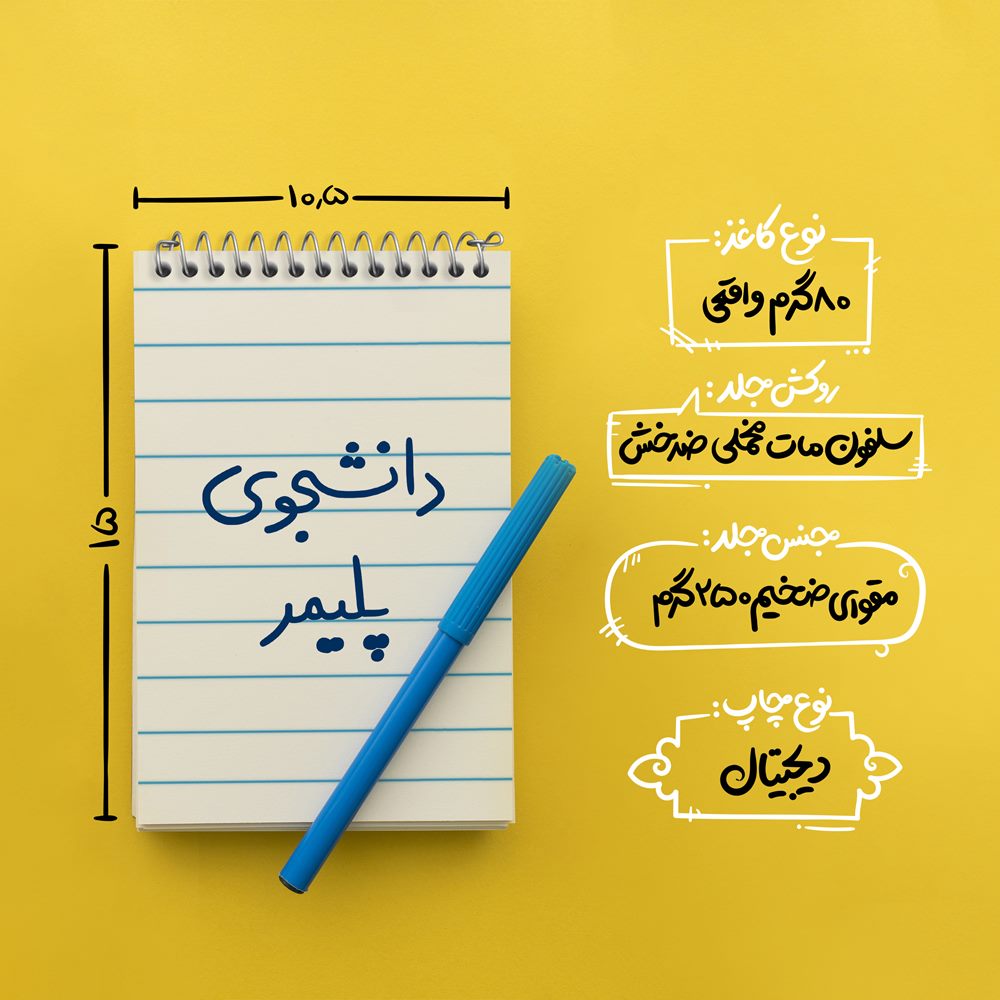 ۱۰٫۵
۱۵
دانشجوی
پلیمر
نوع کاغذ:
۸۰گرم واقعی
روکش جلد:
سلفون مات مخملی ضدخش
جنس جلد:
مقوای ضخیم ۲۵۰گرم
نوع چاپ:
دیجیتال